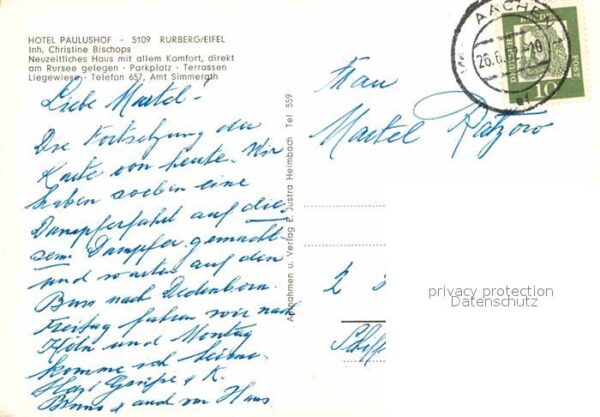 HOTEL PAULUSHOF · 5109 RURBERG/EIFEL
Inh. Christine Bischops
Neuzeitliches Haus mit allem Komfort, direkt
am Rursee gelegen · Parkplatz · Terrassen
Liegewiese · Telefon 657, Amt Simmerath
Liebe Martel!
Die Fortsetzung der
Karte von heute. Wir
haben soeben eine
Dampferfahrt auf die-
sem Dampfer gemacht
und warten auf den
Bus nach Dedenborn.
Freitag fahren wir nach
Köln und Montag
komme ich heim.
Herzl Grüße
Aufnahmen u. Verlag e. Justra Heimbach Tel 559
AACHEN
POST
10
Frau
Martel Ratzow
privacy protection
Datenschutz